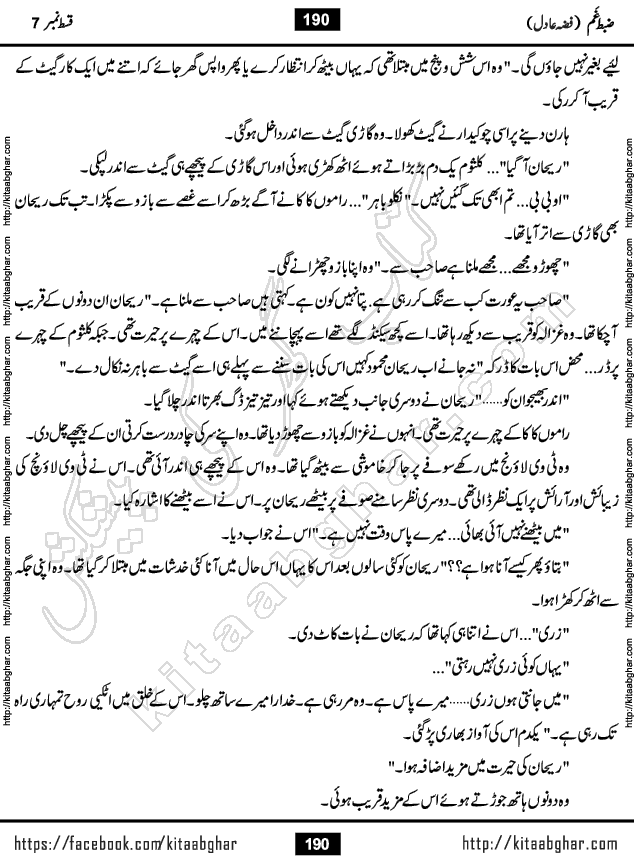 قسط نمبر 7
190
ضبطِ غم (فضہ عادل)
لئیے بغیر نہیں جاؤں گی۔" وہ اس شش و پنج میں مبتلا تھی کہ یہاں بیٹھ کر انتظار کرے یا پھر واپس گھر جائے کہ اتنے میں ایک کار گیٹ کے
قریب آ کر رکی۔
ہارن دینے پر اسی چوکیدار نے گیٹ کھولا۔ وہ گاڑی گیٹ سے اندر داخل ہو گئی۔
"ریحان آ گیا"... کلثوم یک دم بڑبڑاتے ہوئے اٹھ کھڑی ہوئی اور اس گاڑی کے پیچھے ہی گیٹ سے اندر لپکی۔
"او بی بی... تم ابھی تک گئیں نہیں۔" نکلو باہر"... راموں کاکا نے آگے بڑھ کر اسے غصے سے بازو سے پکڑا۔ تب تک ریحان
بھی گاڑی سے اتر آیا تھا۔
"چھوڑو مجھے... مجھے ملنا ہے صاحب سے۔" وہ اپنا بازو چھڑانے لگی۔
"صاحب یہ عورت کب سے تنگ کر رہی ہے۔ پتا نہیں کون ہے۔ کہتی ہیں صاحب سے ملنا ہے۔" ریحان ان دونوں کے قریب
آ چکا تھا۔ وہ غزالہ کو قریب سے دیکھ رہا تھا۔ اسے کچھ سیکنڈ لگے تھے اسے پہچاننے میں۔ اس کے چہرے پر حیرت تھی۔ جبکہ کلثوم کے چہرے
پر ڈر... محض اس بات کا ڈر کہ "نہ جانے اب ریحان محمود کہیں اس کی بات سننے سے پہلے ہی اسے گیٹ سے باہر نہ نکال دے۔"
"اندر بھیجو ان کو......" ریحان نے دوسری جانب دیکھتے ہوئے کہا اور تیز تیز ڈگ بھرتا اندر چلا گیا۔
راموں کاکا کے چہرے پر حیرت تھی۔ انہوں نے غزالہ کو بازو سے چھوڑ دیا تھا۔ وہ اپنے سر کی چادر درست کرتی ان کے پیچھے چل دی۔
وہ ٹی وی لاؤنج میں رکھے سوفے پر جا کر خاموشی سے بیٹھ گیا تھا۔ وہ اس کے پیچھے ہی اندر آئی تھی۔ اس نے ٹی وی لاؤنج کی
زیبائش اور آرائش پر ایک نظر ڈالی تھی۔ دوسری نظر سامنے صوفے پر بیٹھے ریحان پر۔ اس نے اسے بیٹھنے کا اشارہ کیا۔
"میں بیٹھنے نہیں آئی بھائی... میرے پاس وقت نہیں ہے۔" اس نے جواب دیا۔
"بتاؤ پھر کیسے آنا ہوا ہے؟؟؟" ریحان کو کئی سالوں بعد اس کا یہاں اس حال میں آنا کئی خدشات میں مبتلا کر گیا تھا۔ وہ اپنی جگہ
سے اٹھ کر کھڑا ہوا۔
"زری"... اس نے اتنا ہی کہا تھا کہ ریحان نے بات کاٹ دی۔
"یہاں کوئی زری نہیں رہتی"...
"میں جانتی ہوں زری...... میرے پاس ہے۔ وہ مر رہی ہے۔ خدارا میرے ساتھ چلو۔ اس کے خلق میں اٹکیی روح تمہاری راہ
تک رہی ہے۔" یکدم اس کی آواز بھاری پڑ گئی۔
"ریحان کی حیرت میں مزید اضافہ ہوا۔"
وہ دونوں ہاتھ جوڑتے ہوئے اس کے مزید قریب ہوئی۔
https://facebook.com/kitaabghar
190
http://kitaabghar.com
http://kitaabghar.com
http://kitaabghar.com
http://kitaabghar.com
http://kitaabghar.com
http://kitaabghar.com
http://kitaabghar.com
http://kitaabghar.com
http://kitaabghar.com
http://kitaabghar.com
http://kitaabghar.com
http://kitaabghar.com
http://kitaabghar.com
کتاب گھر کی پیشکش
kitaabghar.com